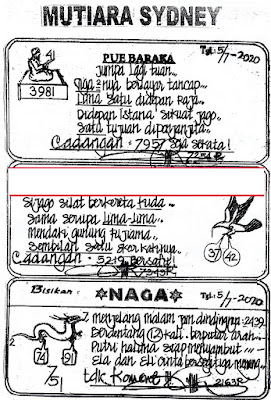 MUTIARA SYDNEY
PUE BARAKA
Tgl: 5/7-2020
41
3981
Jumpa lagi tuan..
Tiga nya berlayar tancap..
Dana satu didepan Raja..
Didepan Istana sekuat jago..
Satu tujuan
Cadangan : 7957 Sah serata!
7254R
Si jago silat berkereta kuda..
Sama serupa lima-lima..
Mendaki gunung tujuama..
Sembilan satu skor kahnya..
Cadangan : 5219 Bersatu!
37
42
7343R
Bisikan
NAGA
Tgl: 5/7-2020
menjelang malam jam dindingnya :2439.
Berdentang (12) kali. berputar arah..
Putri halima siap menyambut..
Ela dan Eli cinta bersegi tiga menang..
74
91
7/51
tdk Komeng
2163R